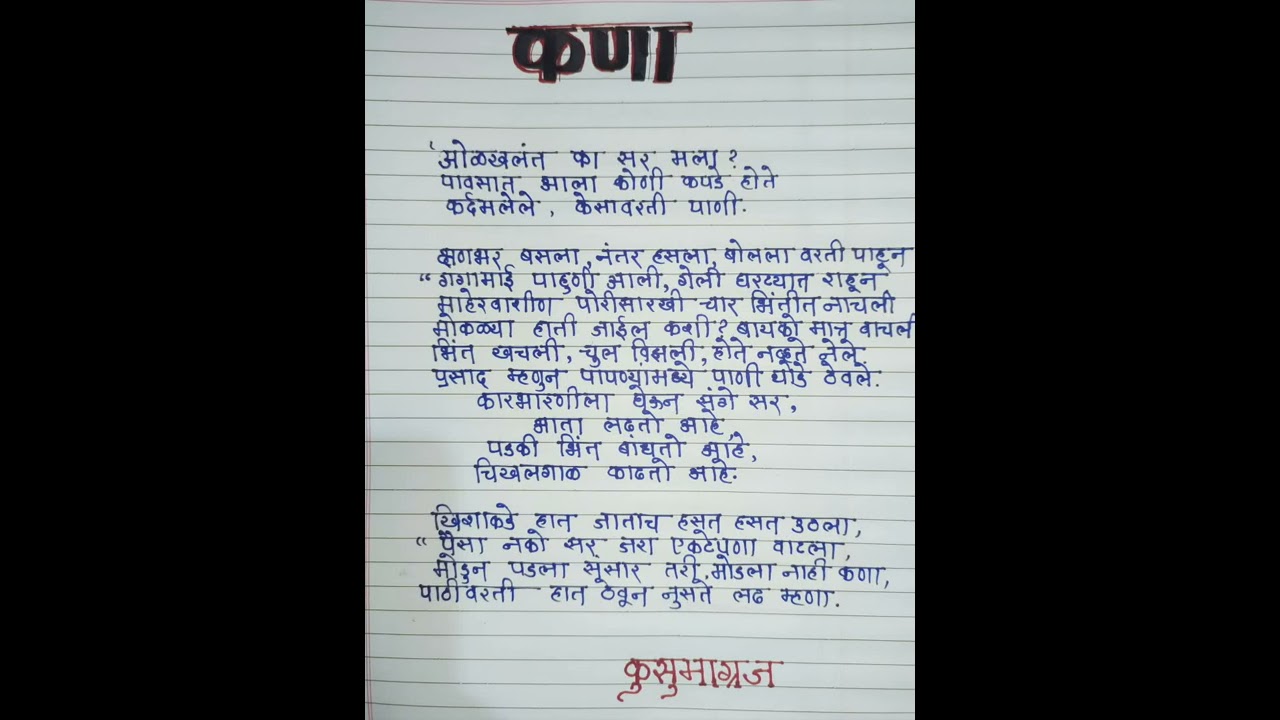 कणा
'ओळखलंत का सर मला?
पावसात आला कोणी कपडे होते
कर्दमलेले, केसावरती पाणी.
क्षणभर बसला, नंतर हसला, बोलला वरती पाहून
"गंगामाई पाहुणी आली, गेली घरट्यात राहून
माहेरवाशीण पोरीसारखी चार भिंतीत नाचली
मोकळ्या हाती जाईल कशी? बायको मात्र वाचली
भिंत खचली, चुल विझली, होते नव्हते नेले.
प्रसाद म्हणुन पापण्यांमध्ये पाणी थोडे ठेवले.
कारभारणीला घेऊन संगे सर,
आता लढतो आहे,
पडकी भिंत बांधतो आहे,
चिखलगाळ काढतो आहे.
खिशाकडे हात जाताच हसूत हसत उठला,
"पैसा नको सर जरा एकटेपणा वाटला,
मोडुन पडला संसार तरी, मोडला नाही कणा,
पाठीवरती हात ठेवून नुसते लढ म्हणा.
कुसुमाग्रज